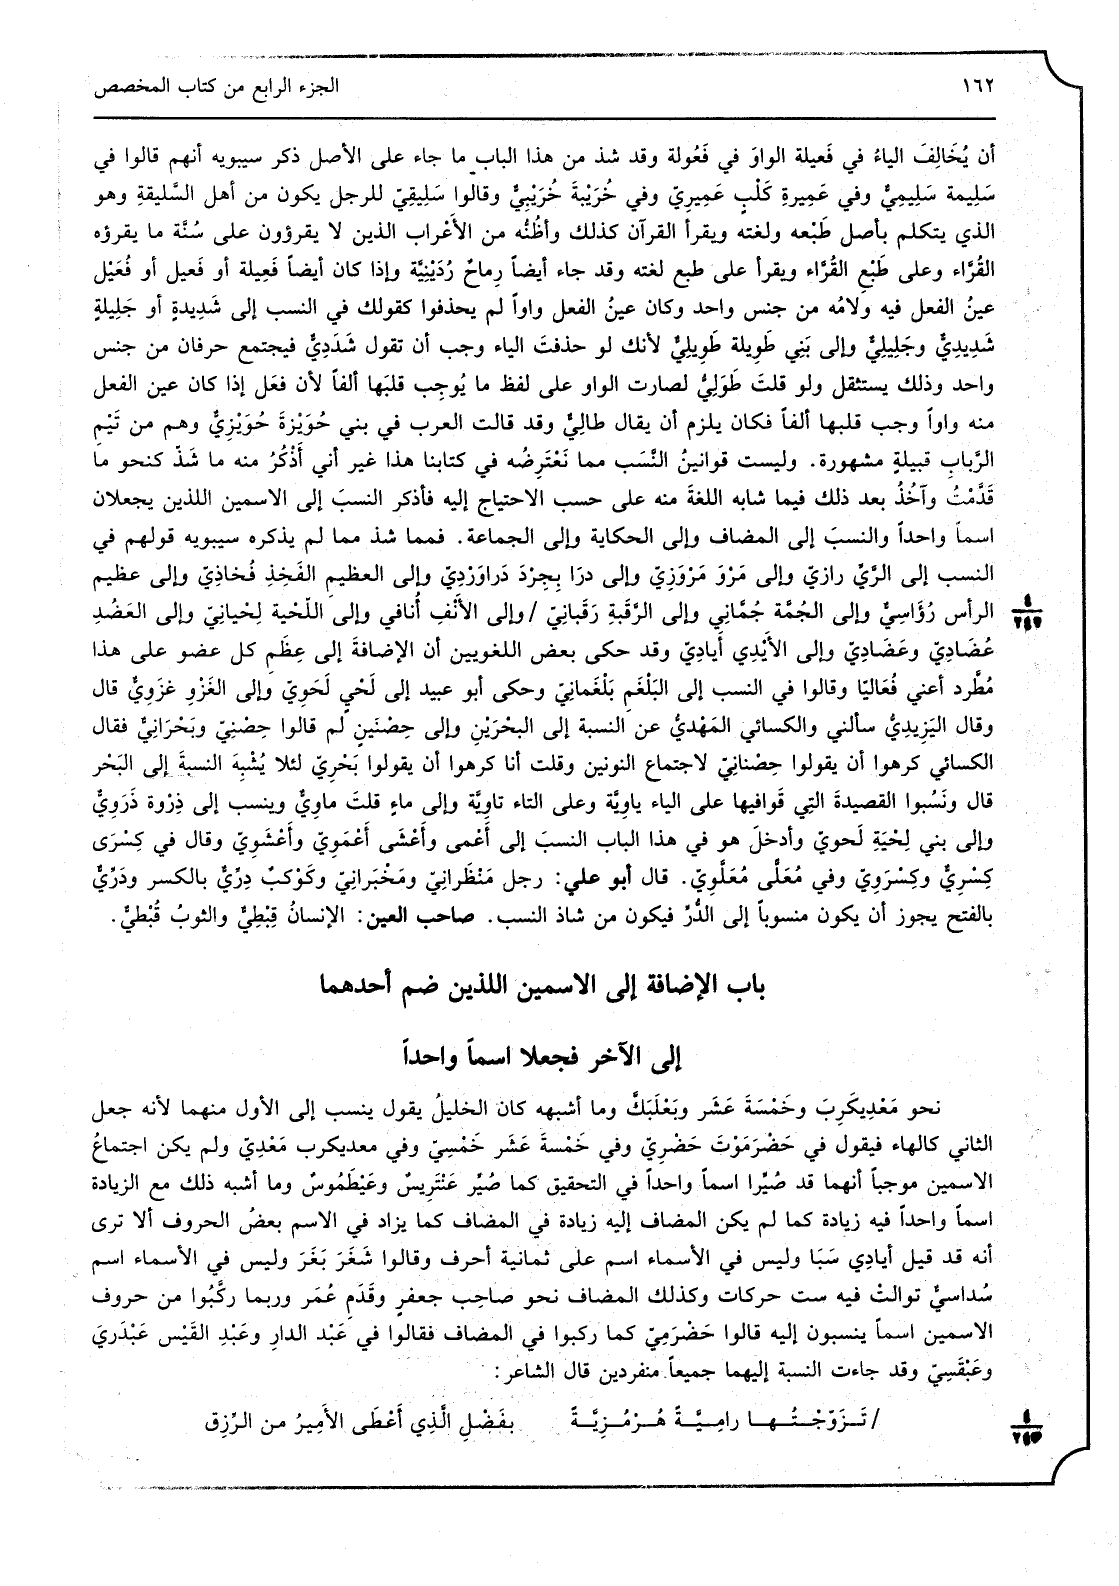 ١٦٢
الجزء الرابع من كتاب المخصص
أن يُخَالِفَ الياءُ في فَعيلة الواوَ في فَعُولة وقد شذ من هذا الباب ما جاء على الأصل ذكر سيبويه أنهم قالوا في
سَلِيمة سَلِيمِيٌّ وفي عَمِيرةِ كَلْبٍ عَمِيرِيّ وفي خُرَيْبةَ خُرَيْبِيٌّ وقالوا سَلِيقِيّ للرجل يكون من أهل السَّليقةِ وهو
الذي يتكلم بأصل طَبْعه ولغته ويقرأ القرآن كذلك وأظُنُّه من الأَعْراب الذين لا يقرؤون على سُنَّة ما يقرؤه
القُرَّاء وعلى طَبْعِ القُرَّاء ويقرأ على طبع لغته وقد جاء أيضاً رِماحٌ رُدَيْنِيَّة وإذا كان أيضاً فَعِيلة أو فَعيل أو فُعَيْل
عينُ الفعل فيه ولامُه من جنس واحد وكان عينُ الفعل واواً لم يحذفوا كقولك في النسب إلى شَدِيدةٍ أو جَلِيلةٍ
شَدِيدِيٌّ وجَلِيلِيٌّ وإلى بَنِي طَوِيلة طَوِيلِيٌّ لأنك لو حذفتَ الياء وجب أن تقول شَدَدِيٌّ فيجتمع حرفان من جنس
واحد وذلك يستثقل ولو قلتَ طَوَلِيٌّ لصارت الواو على لفظ ما يُوجِب قلبَها ألفاً لأن فعَل إذا كان عين الفعل
منه واواً وجب قلبها ألفاً فكان يلزم أن يقال طالِيٌّ وقد قالت العرب في بني حُوَيْزةَ حُوَيْزِيٌّ وهم من تَيْمِ
الرَّبابِ قبيلةٍ مشهورة. وليست قوانينُ النَّسَب مما نَعْتَرِضُه في كتابنا هذا غير أني أَذْكُرُ منه ما شَذّ كنحو ما
قَدَّمْتُ وآخُذُ بعد ذلك فيما شابه اللغةَ منه على حسب الاحتياج إليه فأذكر النسبَ إلى الاسمين اللذين يجعلان
اسماً واحداً والنسبَ إلى المضاف وإلى الحكاية وإلى الجماعة. فمما شذ مما لم يذكره سيبويه قولهم في
النسب إلى الرَّيِّ رازيّ وإلى مَرْوَ مَرْوَزِيّ وإلى درَا بِجِرْدَ دَراوَرْدِيّ وإلى العظيمِ الفَخِذِ فُخاذِيّ وإلى عظيم
الرأس رُؤَاسِيٌّ وإلى الجُمَّة جُمَّاني وإلى الرَّقَبةِ رَقَبانِيّ / وإلى الأَنْفِ أُنافي وإلى اللّحْية لِحْيانِيّ وإلى العَضُدِ
٤
٢٤٢
عُضَادِيّ وعَضَادِيّ وإلى الأَيْدِي أَيادِيّ وقد حكى بعض اللغويين أن الإضافةَ إلى عِظَمِ كل عضو على هذا
مُطَّرد أعني فُعَاليّا وقالوا في النسب إلى البَلْغَم بَلْغَمانِيّ وحكى أبو عبيد إلى لَحْيٍ لَحَوِيّ وإلى الغَزْوِ غزَوِيٌّ قال
وقال اليَزِيدِيُّ سألني والكسائي المَهْدِيُّ عن النسبة إلى البحْرَيْنِ وإلى حِصْنَينِ لم قالوا حِصْنِيّ وبَحْرَانِيٌّ فقال
الكسائي كرهوا أن يقولوا حِصْنانِيّ لاجتماع النونين وقلت أنا كرهوا أن يقولوا بَحْرِيّ لئلا يُشْبِهَ النسبةَ إلى البَحْر
قال ونَسُبوا القصيدةَ التِي قَوافيها على الياء ياوِيَّة وعلى التاء تاوِيَّة وإلى ماءٍ قلتَ ماوِيٌّ وينسب إلى ذِرْوة ذَرَوِيٌّ
وإلى بني لِحْيَةِ لَحوِيّ وأدخلَ هو في هذا الباب النسبَ إلى أَعْمى وأَعْشَى أَعْمَوِيّ وأَعْشَوِيّ وقال في كِسْرَى
كِسْرِيٌّ وكِسْرَوِيّ وفي مُعَلًّى مُعَلَّوِيّ. قال أبو علي: رجل مَنْظَرانِيّ ومَخْبَرانِيّ وكَوْكبٌ دِرِّيٌّ بالكسر ودَرِّيٌّ
بالفتح يجوز أن يكون منسوباً إلى الدُّرِّ فيكون من شاذ النسب. صاحب العين: الإنسانُ قِبْطِيٌّ والثوبُ قُبْطيٌّ.
باب الإضافة إلى الاسمين اللذين ضم أحدهما
إلى الآخر فجعلا اسماً واحداً
نحو مَعْدِيكَرِبَ وخَمْسَةَ عَشَر وبَعْلَبَكَّ وما أشبهه كان الخليلُ يقول ينسب إلى الأول منهما لأنه جعل
الثاني كالهاء فيقول في حَضْرَمَوْتَ حَضْرِيّ وفي خَمْسةَ عشَر خَمْسِيّ وفي معديكرب مَعْدِيّ ولم يكن اجتماعُ
الاسمين موجباً أنهما قد صُيِّرا اسماً واحداً في التحقيق كما صُيِّر عَنْتَرِيسٌ وعَيْطَمُوسٌ وما أشبه ذلك مع الزيادة
اسماً واحداً فيه زيادة كما لم يكن المضاف إليه زيادة في المضاف كما يزاد في الاسم بعضُ الحروف ألا ترى
أنه قد قيل أيادِي سَبَا وليس في الأسماء اسم على ثمانية أحرف وقالوا شَغَرَ بَغَرَ وليس في الأسماء اسم
سُداسيٌّ توالتْ فيه ست حركات وكذلك المضاف نحو صاحِب جعفرٍ وقَدَمِ عُمَر وربما ركَّبُوا من حروف
الاسمين اسماً ينسبون إليه قالوا حَضْرَمِيّ كما ركبوا في المضاف فقالوا في عَبْد الدارِ وعَبْدِ القَيْس عَبْدَريَ
وعَبْقَسِيّ وقد جاءت النسبة إليهما جميعاً منفردين قال الشاعر:
/ تَـزَوّجْـتُـهـا رامِـيَّـةً هُـرْمُـزِيَّـةً بفَضْلِ الَّذِي أَعْطَى الأَمِيرُ من الرِّزِق
٤